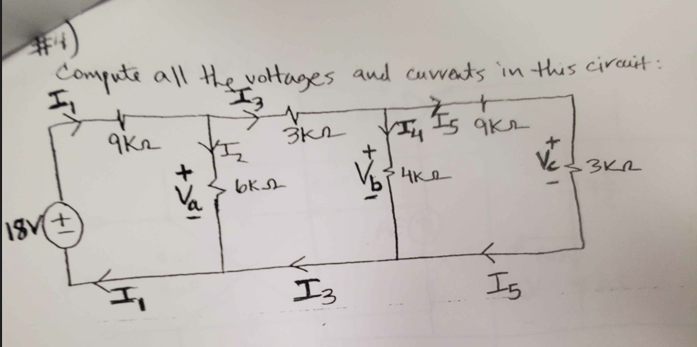 #4)
Compute all the voltages and currents in this circuit:
I₁ I₃
9KΩ I₂ 3KΩ I₄ I₅ 9KΩ
+ + +
Va 6KΩ Vb 4KΩ Vc 3KΩ
- - -
18V +
-
I₁ I₃ I₅